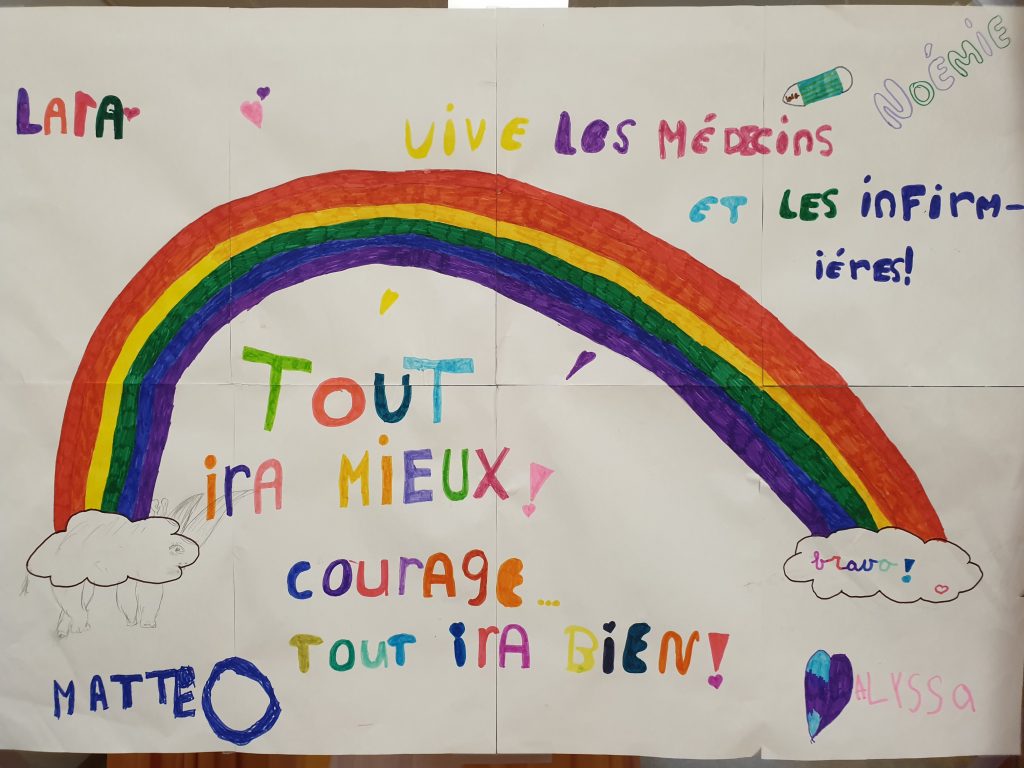 LARA
NOÉMIE
VIVE LES MÉDECINS
ET LES INFIRM-
IÉRES!
TOUT
IRA MIEUX!
COURAGE...
TOUT IRA BIEN!
bravo!
MATTEO
ALYSSA